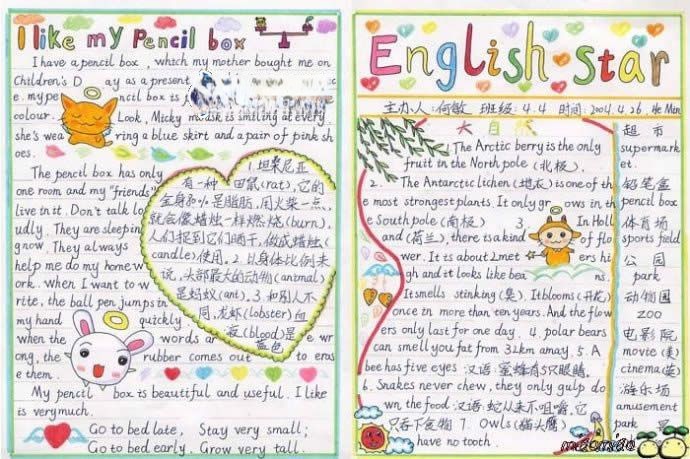 I like my Pencil box
I have a pencil box, which my mother bought me on
Children's D ay as a present
e. my pe ncil box is
colour. Look, Micky mouse is smiling at every
she's wea ring a blue skirt and a pair of pink sh
oes.
The pencil box has only
one room and my "friends"
live in it. Don't talk lo
udly. They are sleeping
now. They always
help me do my home w
ork. when I want to w
rite, the ball pen jumps in
my hand quickly.
when the words are
ong, the rubber comes out to eras
e them.
My pencil box is beautiful and useful. I like
is very much.
Go to bed late, Stay very small;
Go to bed early. Grow very tall.
1. 坦桑尼亚
有一种田鼠(rat),它的
全身80%是脂肪,用火柴一点
就会像蜡烛一样燃烧(burn).
人们捉到它们晒干,做成蜡烛(
candle)使用。2. 以身体比例来
说,头部最大的动物(animal)
是蚂蚁(ant)。3. 和别人不
同,龙虾(lobster)血
液(blood)是
蓝色
English Star
主办人:何敏 班级:4.4 时间:2004.4.26. He Min
大自然
1. The Arctic berry is the only
fruit in the North pole (北极).
2. The Antarctic lichen (地衣) is one of th
e most strongest plants. It only gr ows in th
e South pole (南极) 3. In Holl
and (荷兰), there is a kind of flo
wer. It is about 2 met ers hi
gh and it looks like bea ns.
It smells stinking (臭). It blooms (开花)
once in more than ten years. And the flow
ers only last for one day. 4. polar bears
can smell you fat from 32km away. 5. A
bee has five eyes 汉语:蜜蜂有5只眼睛.
6. Snakes never chew, they only gulp do
wn the food 汉语:蛇从来不咀嚼,它
只吞下食物 7. Owls (猫头鹰)
have no tooth.
超市
supermark
et.
铅笔盒
pencil box
体育场
sports field
公园
park
动物园
zoo
电影院
movie (美)
cinema (英)
游乐场
amusement
park